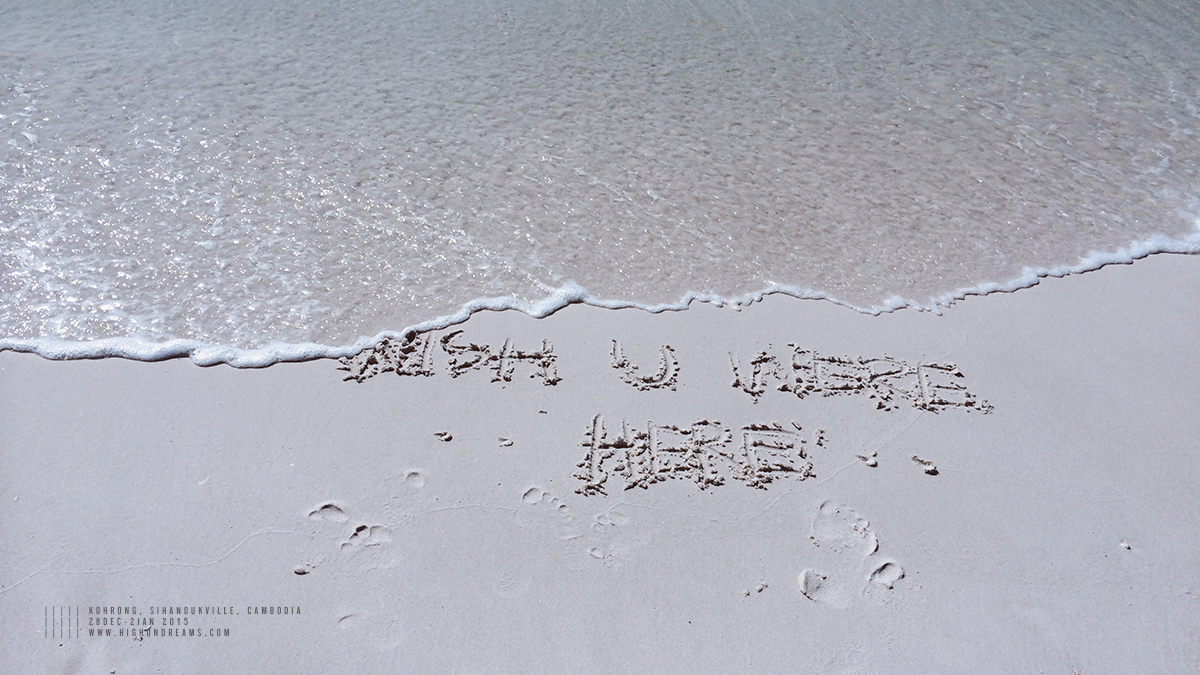 WISH U WERE
HERE
KOHRONG, SIHANOUKVILLE, CAMBODIA
28DEC-2JAN 2015
WWW.HIGHONDREAMS.COM